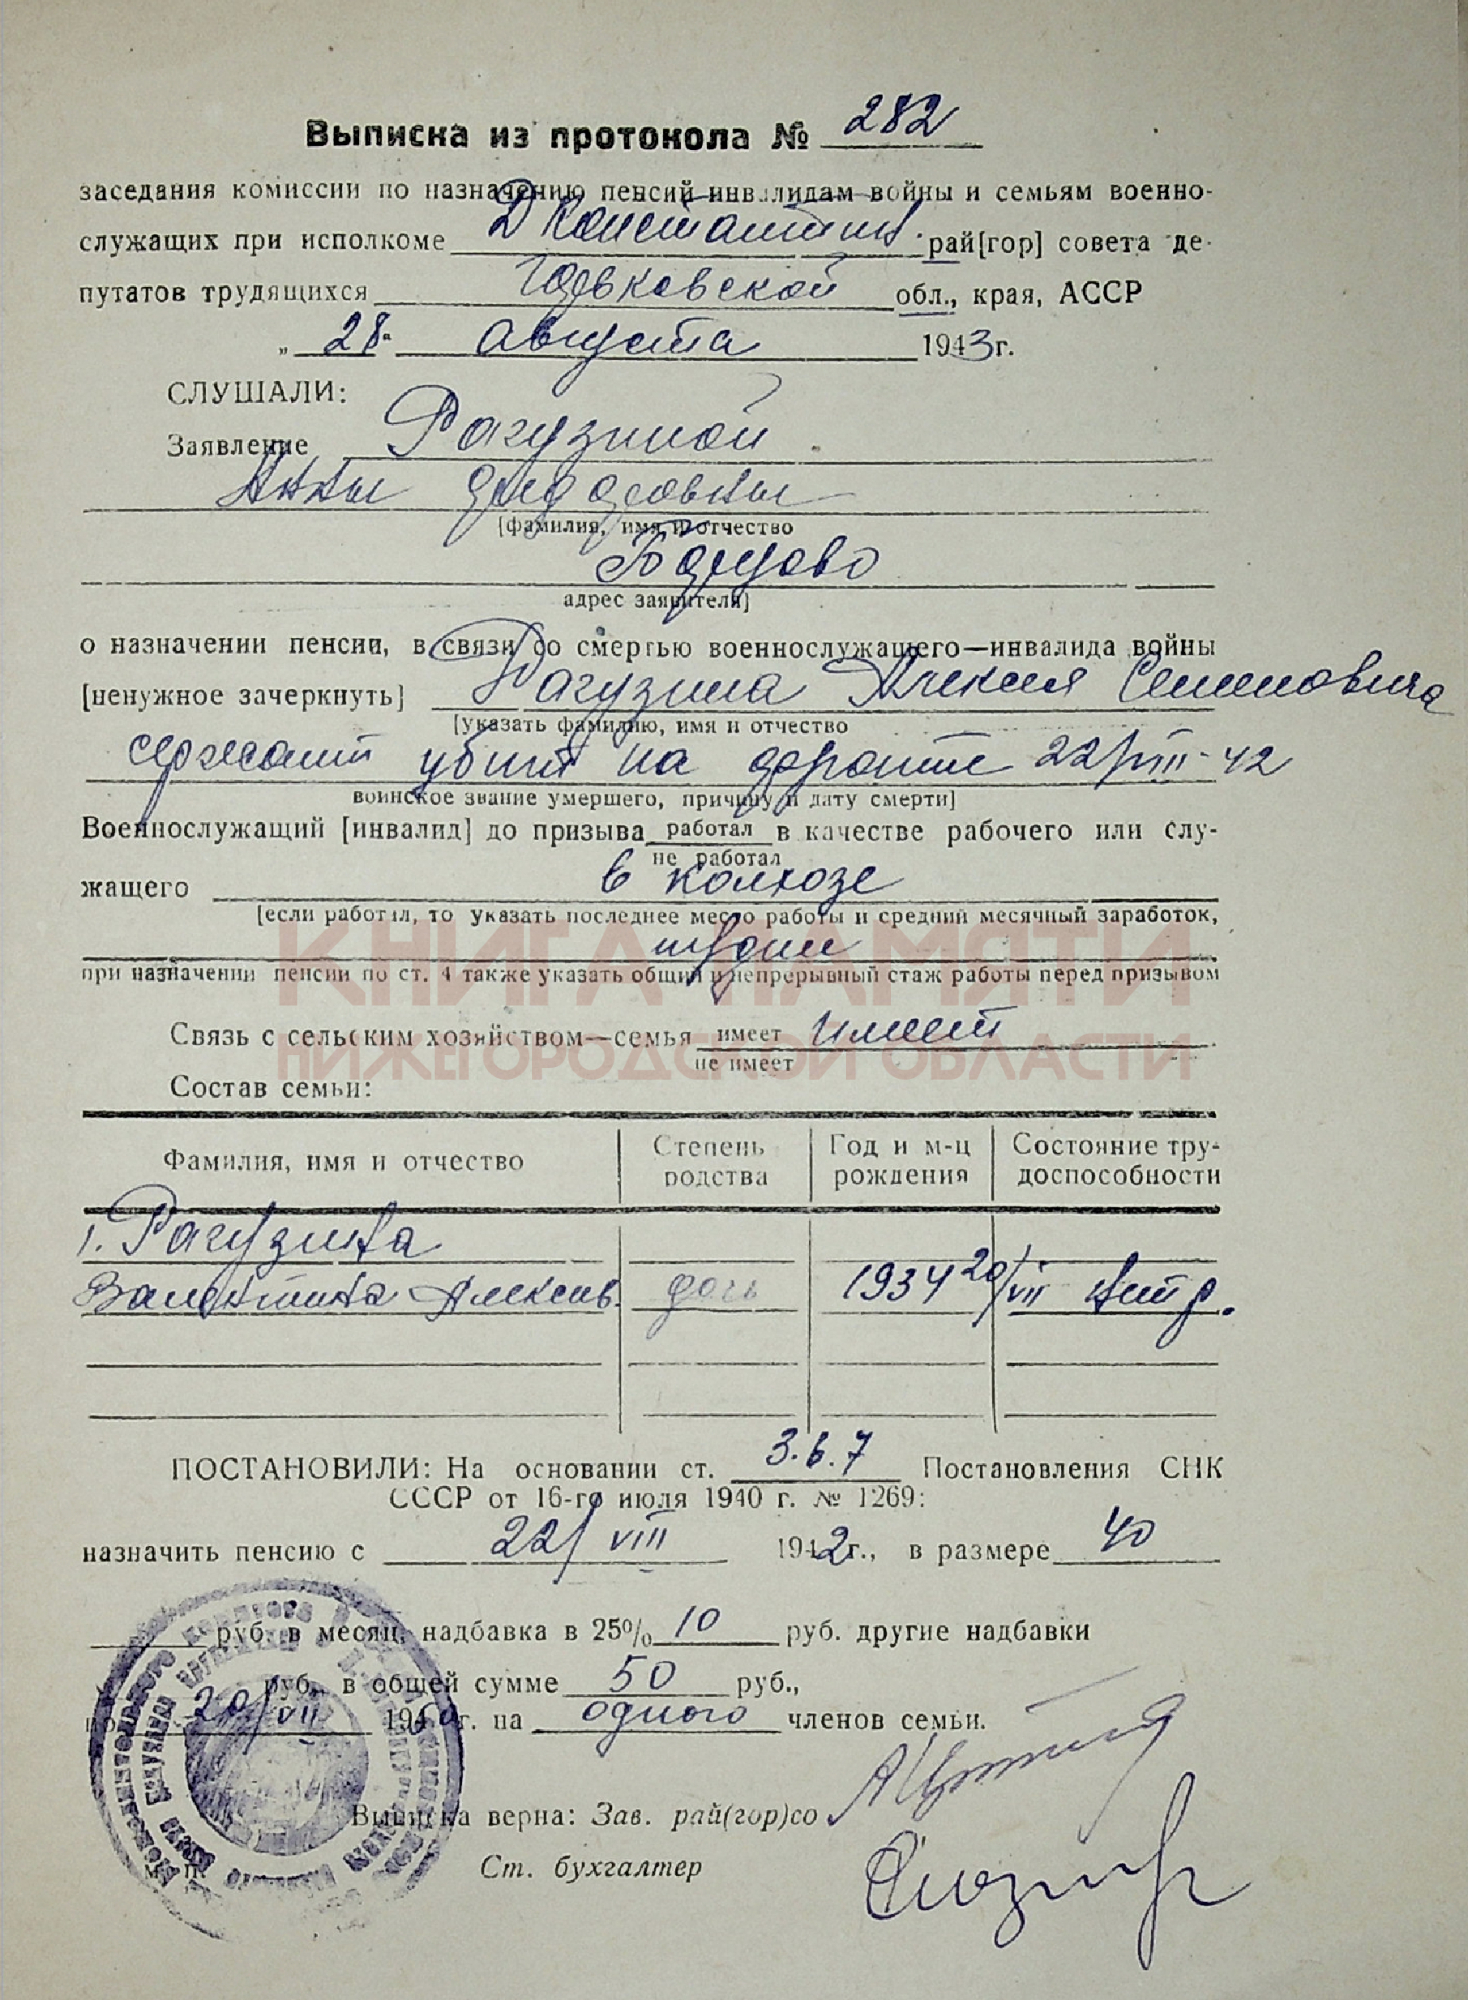 Выписка из протокола № 282
заседания комиссии по назначению пенсий инвалидам войны и семьям военно-
служащих при исполкоме Д Константинов. рай[гор] совета де-
путатов трудящихся Горьковской обл., края, АССР
„ 28 " августа 1943 г.
СЛУШАЛИ:
Заявление Рагузиной
Анны Федоровны
[фамилия, имя и отчество
адрес заявителя]
о назначении пенсии, в связи со смертью военнослужащего—инвалида войны
[ненужное зачеркнуть] Рагузина Алексея Семеновича
[указать фамилию, имя и отчество
сержант убит на фронте 22/VIII-42
воинское звание умершего, причину и дату смерти]
Военнослужащий [инвалид] до призыва работал в качестве рабочего или слу-
не работал
жащего в колхозе
[если работал, то указать последнее место работы и средний месячный заработок,
КНИГА ПАМЯТИ
при назначении пенсии по ст. 4 также указать общий и непрерывный стаж работы перед призывом
Связь с сельским хозяйством—семья имеет имеет
НИЖЕГОРОДСКОЙ ОБЛАСТИ
не имеет
Состав семьи:
Фамилия, имя и отчество Степень родства Год и м-ц рождения Состояние тру-доспособности
1. Рагузина
Валентина Алексеев. дочь 1934 20/VII нетр.
ПОСТАНОВИЛИ: На основании ст. 3.6.7 Постановления СНК
СССР от 16-го июля 1940 г. № 1269:
назначить пенсию с 22/VIII 1942 г., в размере 40
руб. в месяц, надбавка в 25% 10 руб. другие надбавки
руб. в общей сумме 50 руб.,
по 20/VII 1950 г. на одного членов семьи.
Выписка верна: Зав. рай(гор)со
Ст. бухгалтер
м. п.